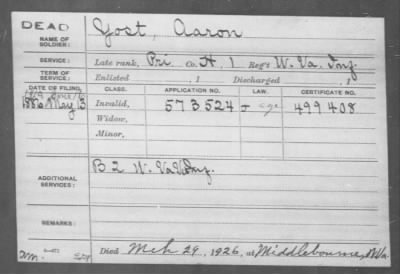 DEAD
NAME OF SOLDIER: Yost, Aaron
SERVICE: Late rank, Pri Co. H, 1 Reg't W. Va. Inf.
TERM OF SERVICE: Enlisted , 1 Discharged , 1
DATE OF FILING. CLASS. APPLICATION NO. LAW. CERTIFICATE NO.
1886 May 13 Invalid, 573524 499408
Widow,
Minor,
ADDITIONAL SERVICES: B 2 W. Va V Inf.
REMARKS:
Died Mch 29, 1926, at Middlebourne, W Va